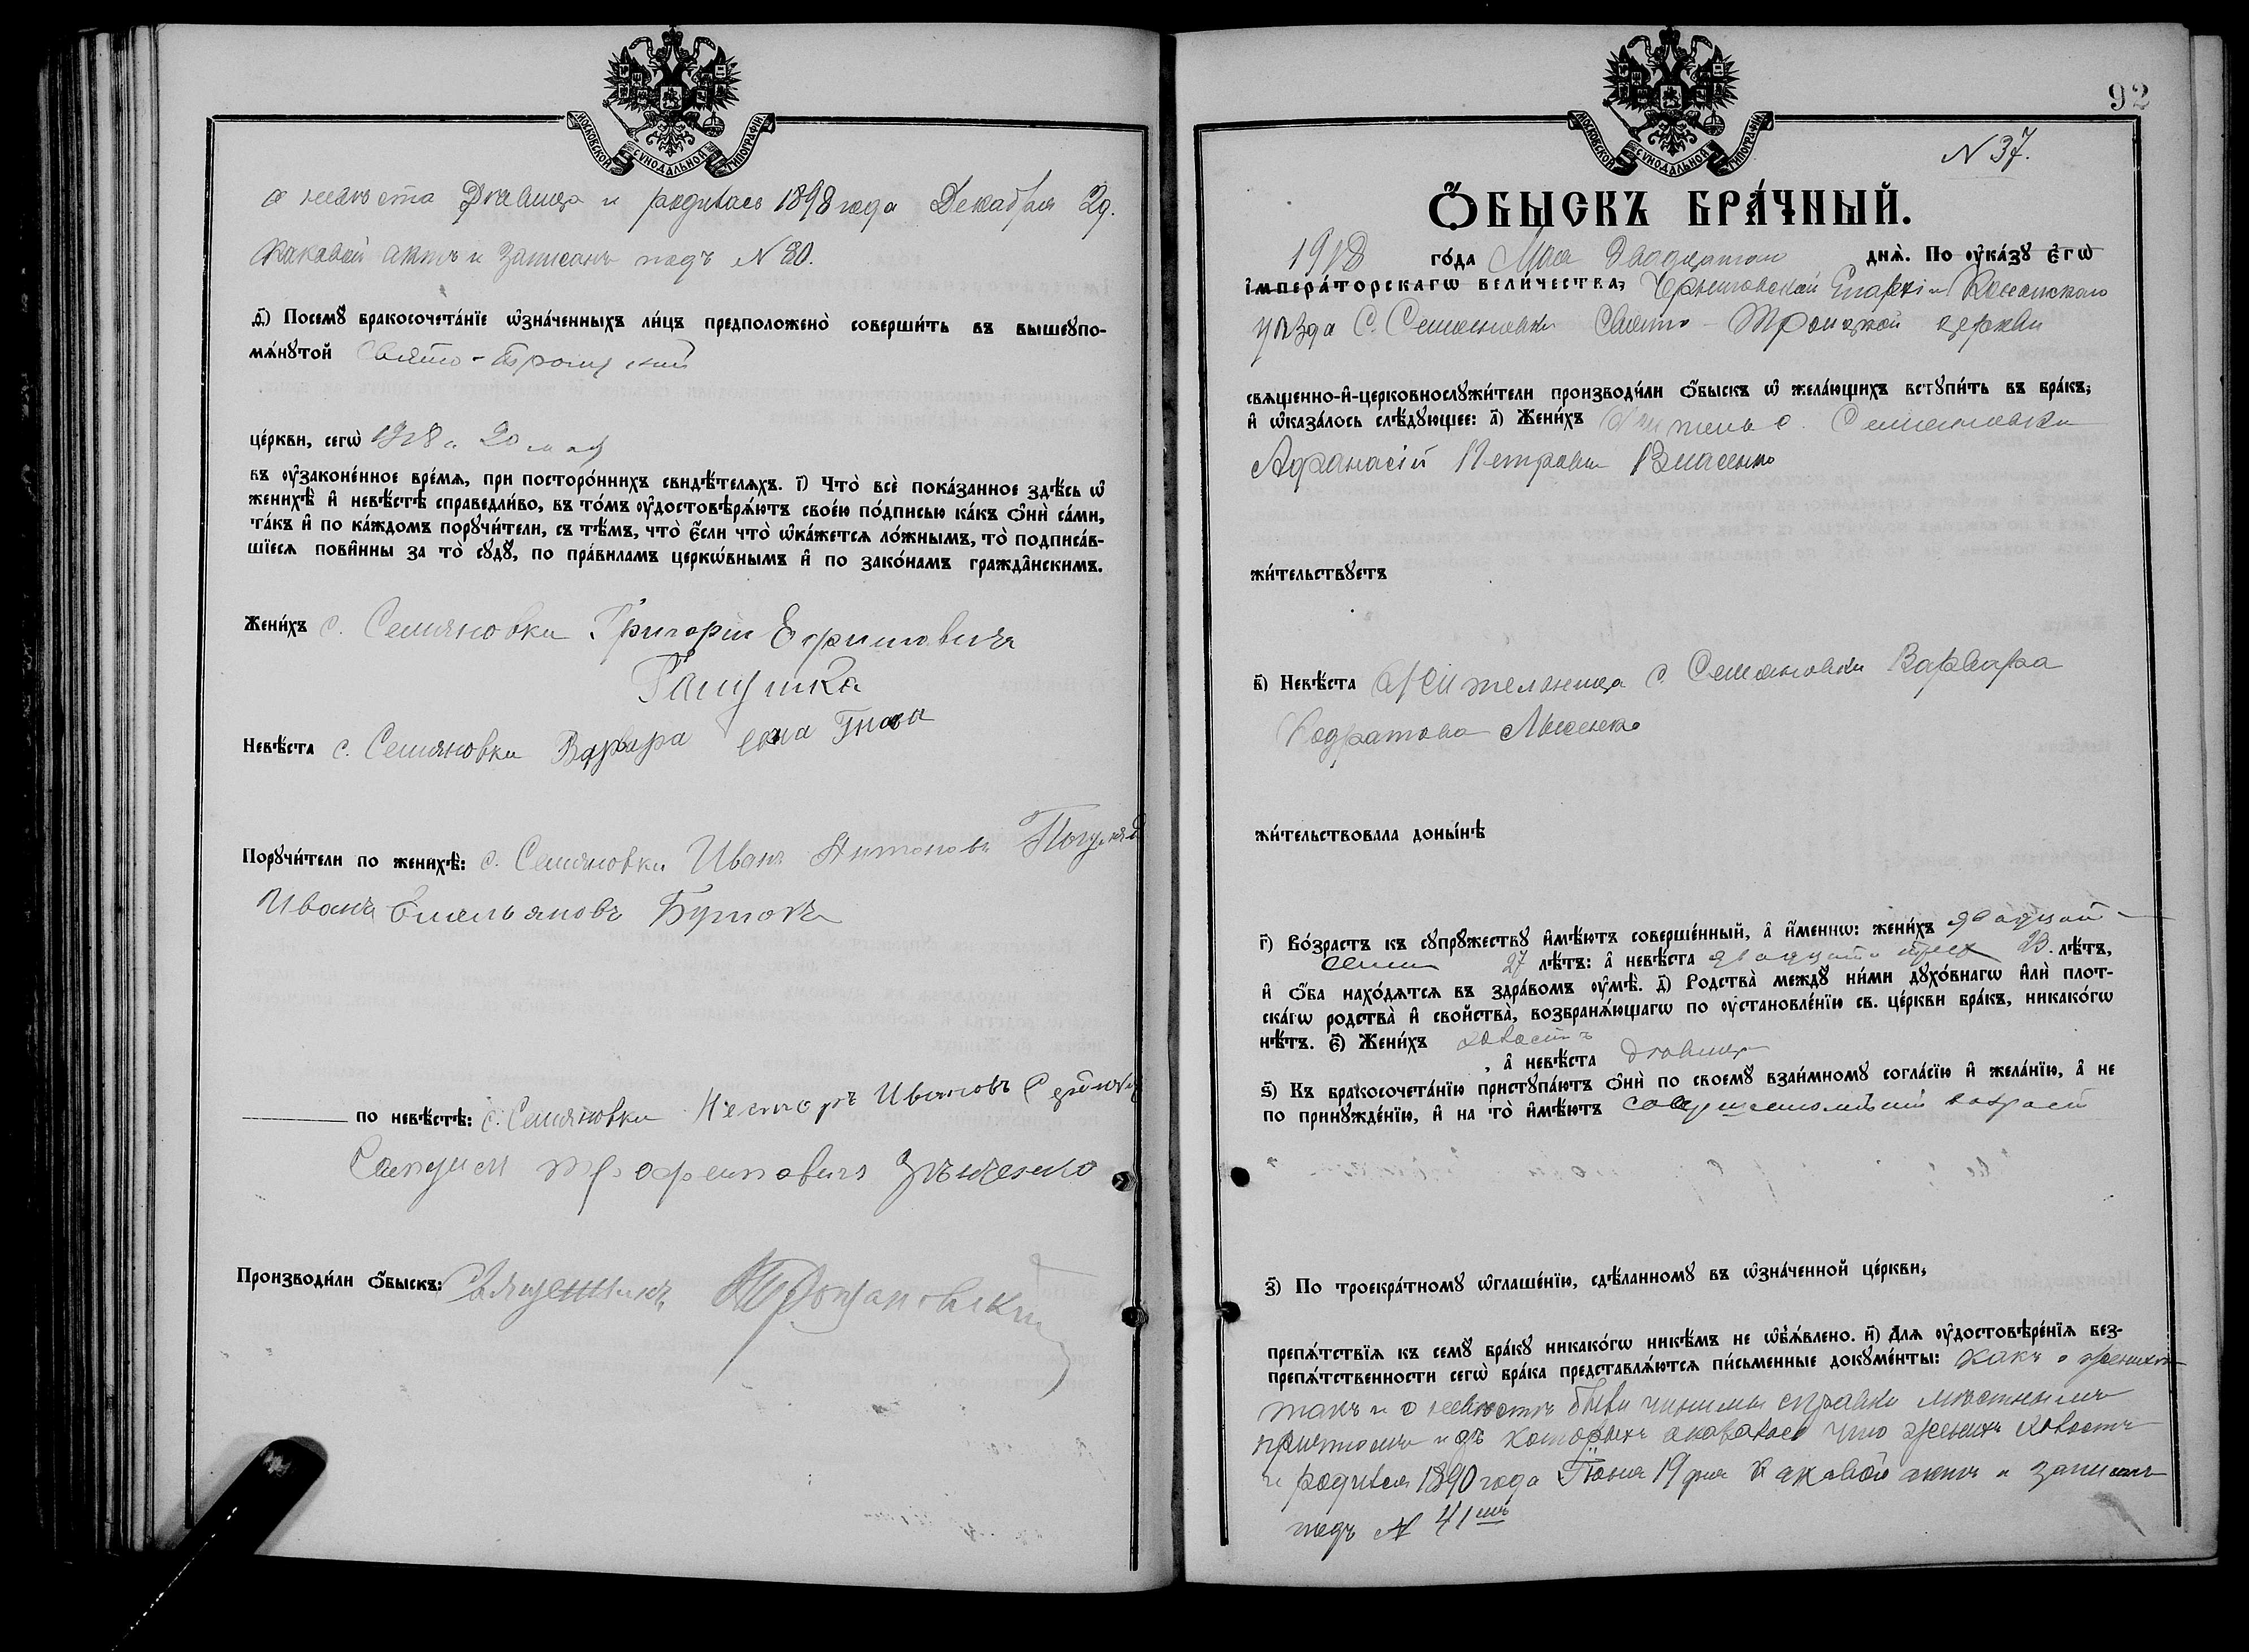 МОСКОВСКОЙ СѴНОДАЛЬНОЙ ТИПОГРАФІИ
а невѣста Дѣвица и родилась 1898 года Декабря 29.
каковой актъ и записанъ подъ N 80.
д҃) Посемꙋ̀ бракосочета́нїе ѡ҆зна́ченныхъ ли́цъ предположено̀ соверши́ть въ вышеꙋпо-
мѧ́нꙋтой Свято-Троицкой
це́ркви, сегѡ̀ 1918 г. 20 мая
въ ᲂу҆законе́нное вре́мѧ, при посторо́ннихъ свидѣ́телѧхъ. і҃) Что̀ всѐ пока́занное здѣ́сь ѡ҆
женихѣ̀ и҆ невѣ́стѣ справедли́во, въ то́мъ ᲂу҆достовѣрѧ́ютъ свое́ю по́дписью ка́къ ѻ҆нѝ са́ми,
та́къ и҆ по ка́ждомъ порꙋчи́тели, съ тѣ́мъ, что̀ є҆́сли что̀ ѡ҆ка́жетсѧ ло́жнымъ, то̀ подписа́в-
шїесѧ пови́нны за то̀ сꙋдꙋ̀, по пра́виламъ церкѡ́внымъ и҆ по зако́намъ гражда́нскимъ.
Жени́хъ с. Семяновки Григорій Ефимовичъ
Галушка
Невѣ́ста с. Семяновки Варвара
Порꙋчи́тели по женихѣ̀: с. Семяновки Иванъ Антоновъ
Иванъ Емельяновъ
по невѣ́стѣ: с. Семяновки Несторъ Ивановъ
Трофимовичъ
Производи́ли ѻ҆́быскъ: Священникъ
92
МОСКОВСКОЙ СѴНОДАЛЬНОЙ ТИПОГРАФІИ
N 37.
Ѻ҆́БЫСКЪ БРА́ЧНЫЙ.
1918 го́да Мая двадцатого днѧ̀. По ᲂу҆ка́зꙋ є҆гѡ̀
і҆мпера́торскагѡ вели́чества, Черниговской Епархіи Конотопского
уѣзда С. Семяновки Свято-Троицкой церкви
свѧще́нно-и҆-церковнослꙋжи́тели производи́ли ѻ҆́быскъ ѡ҆ жела́ющихъ встꙋпи́ть въ бра́къ,
и҆ ѡ҆каза́лось слѣ́дꙋющее: а҃) Жени́хъ житель с. Семяновки
Афанасій Петровъ Власенко
жи́тельствꙋетъ
в҃) Невѣ́ста жительница с. Семяновки Варвара
Кодратова Лысенко
жи́тельствовала доны́нѣ
г҃) Во́зрастъ къ сꙋпрꙋ́жествꙋ и҆мѣ́ютъ соверше́нный, а҆ и҆́меннѡ: жени́хъ двадцати
семи 27 лѣ́тъ: а҆ невѣ́ста двадцати трех 23. лѣ́тъ,
и҆ ѻ҆́ба нахо́дѧтсѧ въ здра́вомъ ᲂу҆мѣ̀. д҃) Родства̀ междꙋ̀ ни́ми дꙋхо́внагѡ и҆лѝ плот-
ска́гѡ родства̀ и҆ свойства̀, возбранѧ́ющагѡ по ᲂу҆становле́нїю св. це́ркви бра́къ, никако́гѡ
нѣ́тъ. є҃) Жени́хъ холостъ
, а҆ невѣ́ста дѣвица
ѕ҃) Къ бракосочета́нїю пристꙋпа́ютъ ѻ҆нѝ по своемꙋ̀ взаи́мномꙋ согла́сїю и҆ жела́нїю, а҆ не
по принꙋжде́нїю, и҆ на то̀ и҆мѣ́ютъ возраст
з҃) По троекра́тномꙋ ѡ҆глаше́нїю, сдѣ́ланномꙋ въ ѡ҆зна́ченной це́ркви,
препѧ́тствїѧ къ семꙋ̀ бра́кꙋ никако́гѡ никѣ́мъ не ѡ҆б̾ѧ́влено. и҃) Длѧ ᲂу҆достовѣре́нїѧ без-
препѧ́тственности сегѡ̀ бра́ка представлѧ́ютсѧ пи́сьменные докꙋме́нты: какъ о женихѣ
такъ и о невѣстѣ были чинимы справки мѣстнымъ
причтомъ изъ которыхъ оказалось что женихъ холостъ
и родился 1890 года Іюня 19 дня каковой актъ и записанъ
подъ N 41 імъ